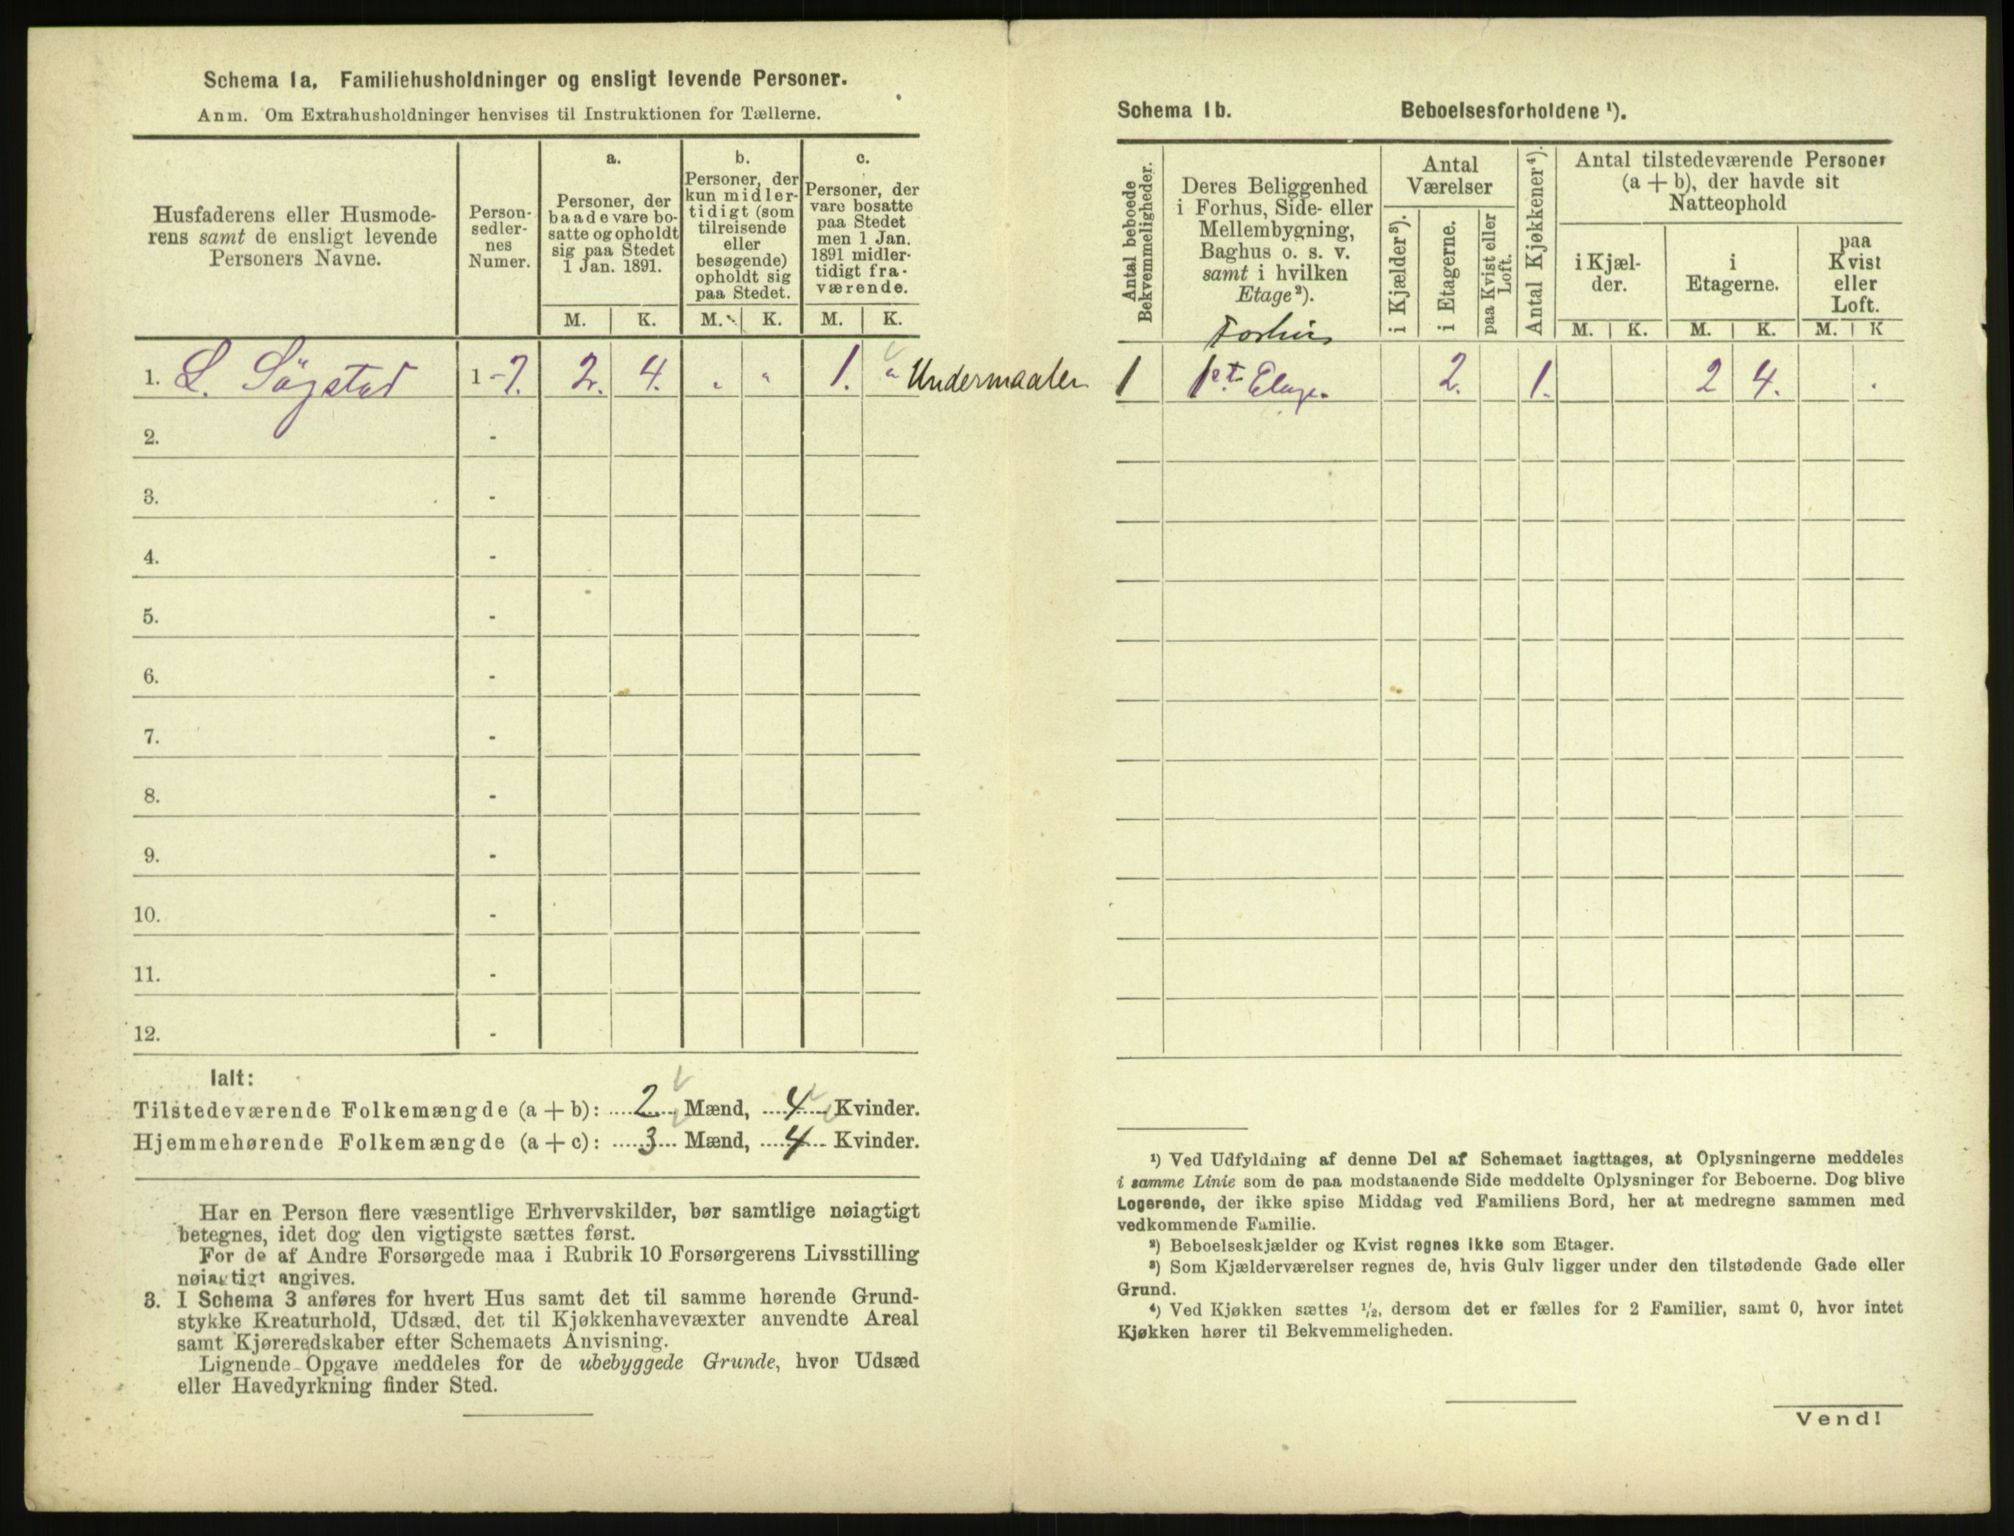 Schema 1a. Familiehusholdninger og ensligt levende Personer.
Anm. Om Extrahusholdninger henvises til Instruktionen for Tællerne.
Husfaderens eller Husmode-
rens samt de ensligt levende
Personers Navne.
Person-
sedler-
nes
Numer.
a.
Personer, der
baade vare bo-
satte og opholdt
sig paa Stedet
1 Jan. 1891.
M. K.
b.
Personer, der
kun midler-
tidigt (som
tilreisende
eller
besøgende)
opholdt sig
paa Stedet.
M. K.
c.
Personer, der
vare bosatte
paa Stedet
men 1 Jan.
1891 midler-
tidigt fra-
værende.
M. K.
1. L. Søgstad 1 - 7. 2. 4. „ „ 1. „ Undermaaler
2. -
3. -
4. -
5. -
6. -
7. -
8. -
9. -
10. -
11. -
12. -
Ialt:
Tilstedeværende Folkemængde (a + b): 2 Mænd, 4 Kvinder.
Hjemmehørende Folkemængde (a + c): 3 Mænd, 4 Kvinder.
Har en Person flere væsentlige Erhvervskilder, bør samtlige nøiagtigt
betegnes, idet dog den vigtigste sættes først.
For de af Andre Forsørgede maa i Rubrik 10 Forsørgerens Livsstilling
nøiagtigt angives.
3. I Schema 3 anføres for hvert Hus samt det til samme hørende Grund-
stykke Kreaturhold, Udsæd, det til Kjøkkenhavevæxter anvendte Areal
samt Kjøreredskaber efter Schemaets Anvisning.
Lignende Opgave meddeles for de ubebyggede Grunde, hvor Udsæd
eller Havedyrkning finder Sted.
Schema 1b. Beboelsesforholdene ¹).
Antal beboede
Bekvemmeligheder.
Deres Beliggenhed
i Forhus, Side- eller
Mellembygning,
Baghus o. s. v.
samt i hvilken
Etage²).
Antal
Værelser
i Kjælder³).
i Etagerne.
paa Kvist eller
Loft.
Antal Kjøkkener⁴).
Antal tilstedeværende Personer
(a + b), der havde sit
Natteophold
i Kjæl-
der.
M. K.
i
Etagerne.
M. K.
paa
Kvist
eller
Loft.
M. K
Forhus
1 1et. Etage. 2. 1. 2 4.
¹) Ved Udfyldning af denne Del af Schemaet iagttages, at Oplysningerne meddeles
i samme Linie som de paa modstaaende Side meddelte Oplysninger for Beboerne. Dog blive
Logerende, der ikke spise Middag ved Familiens Bord, her at medregne sammen med
vedkommende Familie.
²) Beboelseskjælder og Kvist regnes ikke som Etager.
³) Som Kjælderværelser regnes de, hvis Gulv ligger under den tilstødende Gade eller
Grund.
⁴) Ved Kjøkken sættes ½, dersom det er fælles for 2 Familier, samt 0, hvor intet
Kjøkken hører til Bekvemmeligheden.
Vend!